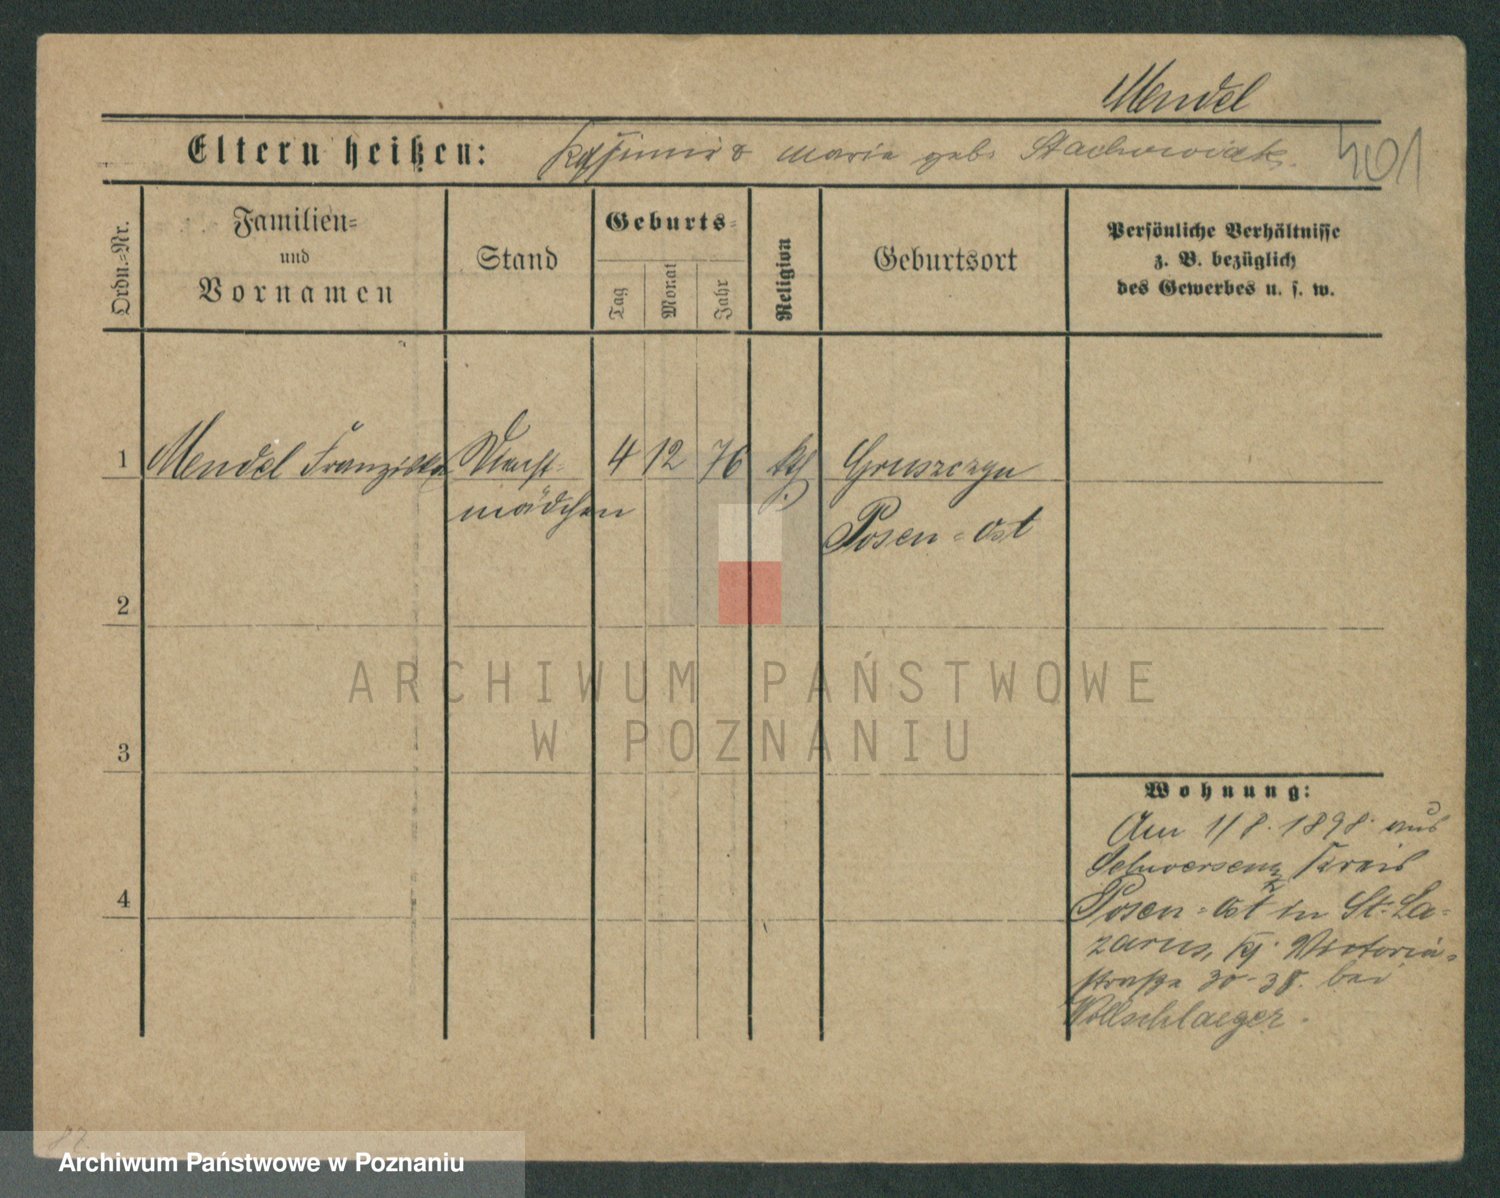 Mendel
Eltern heißen: Kasimir & Maria geb. Stachowiak.
401
Ordn.-Nr.
Familien-
und
Vornamen
Stand
Geburts-
Tag
Monat
Jahr
Religion
Geburtsort
Persönliche Verhältnisse
z. B. bezüglich
des Gewerbes u. s. w.
1 Mendel Franziska Dienst- 4 12 76 kth. Gruszczyn
mädchen Posen-Ost
2
ARCHIWUM PAŃSTWOWE
W POZNANIU
3
Wohnung:
Am 1/8. 1898. aus
Schwersenz Kreis
4
Posen-Ost in St. La-
zarus, Viktoria-
straße 30-38. bei
Wollschlaeger.
Archiwum Państwowe w Poznaniu